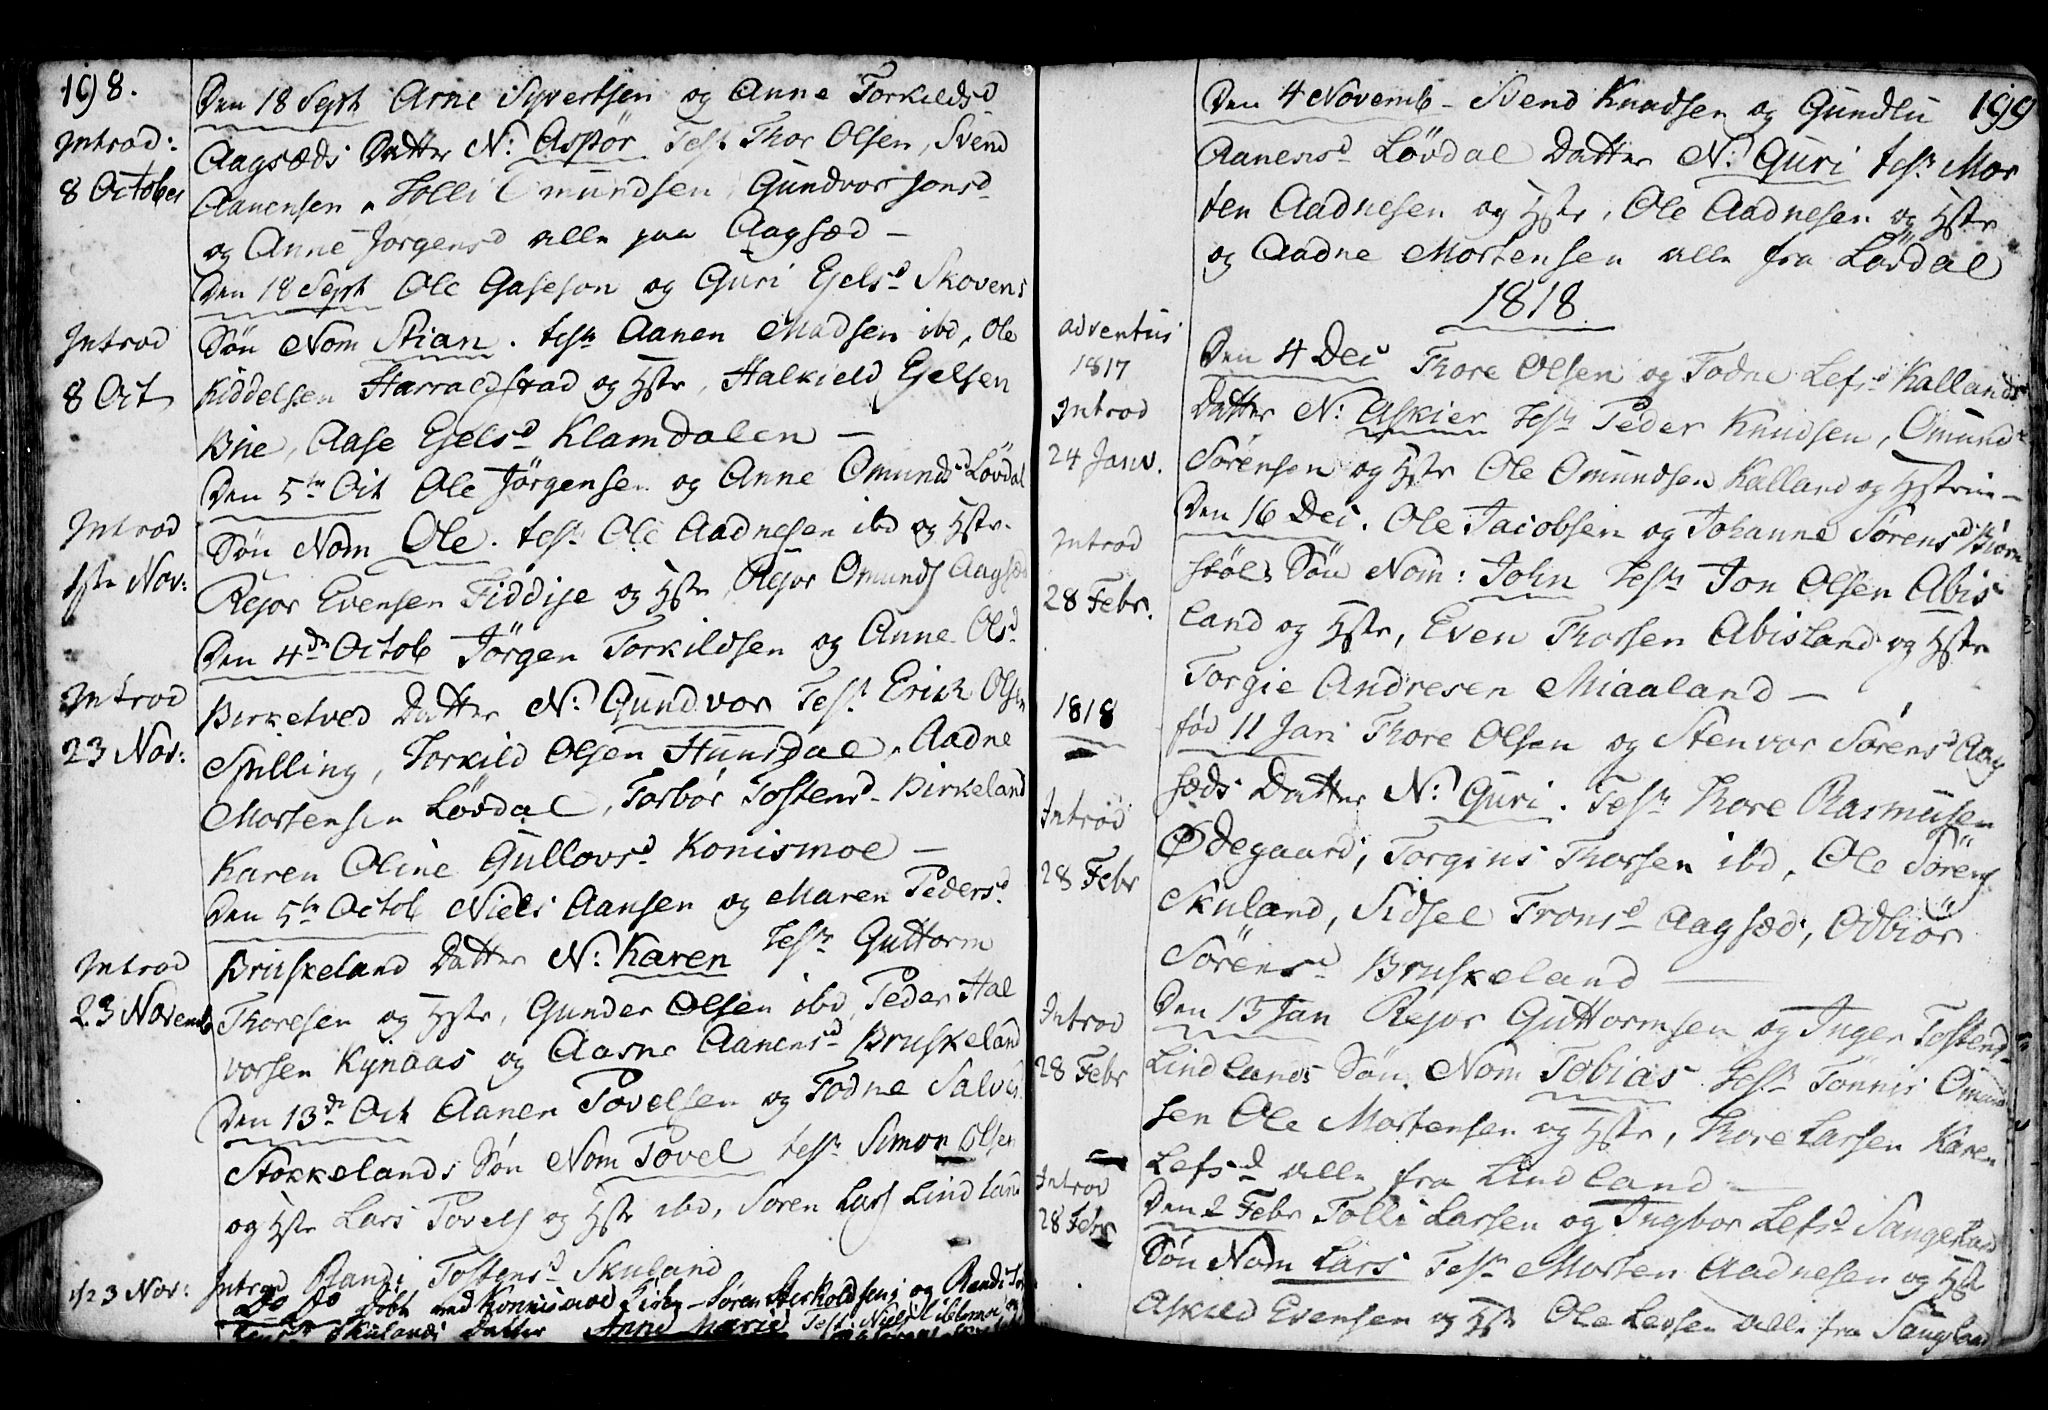 198.
Introd:
8 October
Den 18 Sept Arne Syvertsen og Anne Torkildsd
Aagsæds Datter N: Aspör Test Thor Olsen, Svend
Aanensen, Tolli Omundsen, Gundvor Jonsd
og Anne Jorgensd alle paa Aagsæd —
Introd
8 Oct
Den 18 Sept Ole Gaseson og Guri Ejelsd Skovens
Sön Nom Stian. testr Aanen Madsen ibd, Ole
Kiddelsen Harraldstad og Hstr, Halkield Ejelsen
Bue, Aase Ejelsd Klamdalen —
Introd
1ste Nov:
Den 5te Oct Ole Jörgensen og Anne Omundsd Lövdal
Sön Nom Ole. test Ole Aadnesen ibd og Hstr.
Rejor Evensen Fiddije og Hstr, Rejor Omunds Aagsæd
Introd
23 Nov:
Den 4de Octob Jörgen Torkildsen og Anne Olsd
Birketved Datter N: Gundvor Test Erich Olsen
Spilling, Torkild Olsen Hunsdal, Aadne
Mortensen Lövdal, Torbör Tostensd Birkeland
Karen Oline Gullovsd Konismoe —
Introd
23 Novemb
Den 5te Octob Niels Aansen og Maren Pedersd
Bruskeland Datter N: Karen Testr Guttorm
Thoresen og Hstr, Gunder Olsen ibd, Peder Hal
vorsen Kynaas og Aasne Aanensd Bruskeland
Den 13de Oct Aanen Povelsen og Todne Salves
Stokkelands Sön Nom Povel testr Simon Olsen
og Hstr Lars Povels og Hstr ibd, Soren Lars Lindland
Introd Randi Tostensd Skuland
23 Nov:
Do Do döbt ved Konnismoe Kirke — Sören Askoldsen og Randi
Skulands Datter Anne Marie Test. Niels
199
Den 4 Novemb — Svend Knudsen og Gundlu
Aanensd Lövdal Datter N. Guri testr Mor
ten Aadnesen og Hstr, Ole Aadnesen og Hstr
og Aadne Mortensen alle fra Lövdal
1818.
adventus
1817
Introd
24 Janv.
Den 4 Dec Thore Olsen og Todne Lefsd Kallands
Datter N: Askier Testr Peder Knudsen, Omund
Sörensen og Hstr Ole Omundsen Kalland og Hstrue —
Introd
28 Febr.
Den 16 Dec. Ole Jacobsen og Johanne Sörensd Biörn
stöls Sön Nom: John Testr Jon Olsen Abis
land og Hstr, Even Thorsen Abisland og Hstr
Torgie Andresen Miaaland —
1818
Introd
28 Febr
föd 11 Jan Thore Olsen og Stenvor Sörensd Aag
sæds Datter N: Guri. Testr Thore Rasmusen
Ödegaard, Torgius Thorsen ibd, Ole Sörens
Skuland, Sidsel Tronsd Aagsæd, Odbiör
Sörensd Bruskeland —
Introd
28 Febr
Den 15 Jan Rejor Guttormsen og Inger Tostend
Lindlands Sön. Nom Tobias Testr Tönnis Omund
sen Ole Mortensen og Hstr, Thore Larsen Karen
Lefsd alle fra Lindland —
Introd
28 Febr
Den 2 Febr Tolli Larsen og Ingbor Lefsd Sangeland
Sön Nom Lars Testr Morten Aadnesen og Hstr
Askild Evensen og Hstr Ole Levsen alle fra Sangeland